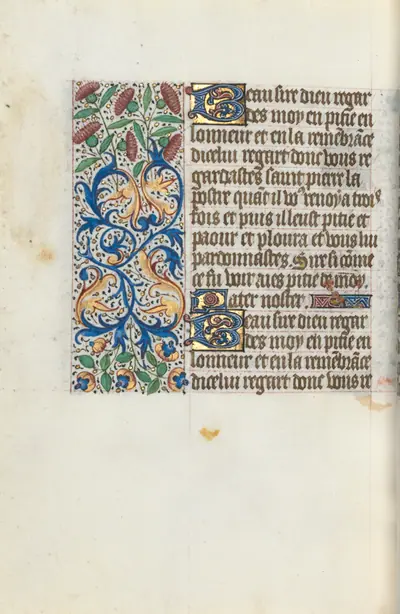 Beau sire dieu regar
des moy en pitie en
lonneur et en la remēbrāce
dicelui regart donc vous re
gardastes saint pierre la
postre quāt il vꝰ renoya trois
fois et puis il eust pitie et
paour et ploura et vous lui
pardonnastes. Sire si cōme
ce fu voir aies pitie de moy
Pater noster.
Beau sire dieu regar
des moy en pitie en
lonneur et en la remēbrāce
dicelui regart donc vous re